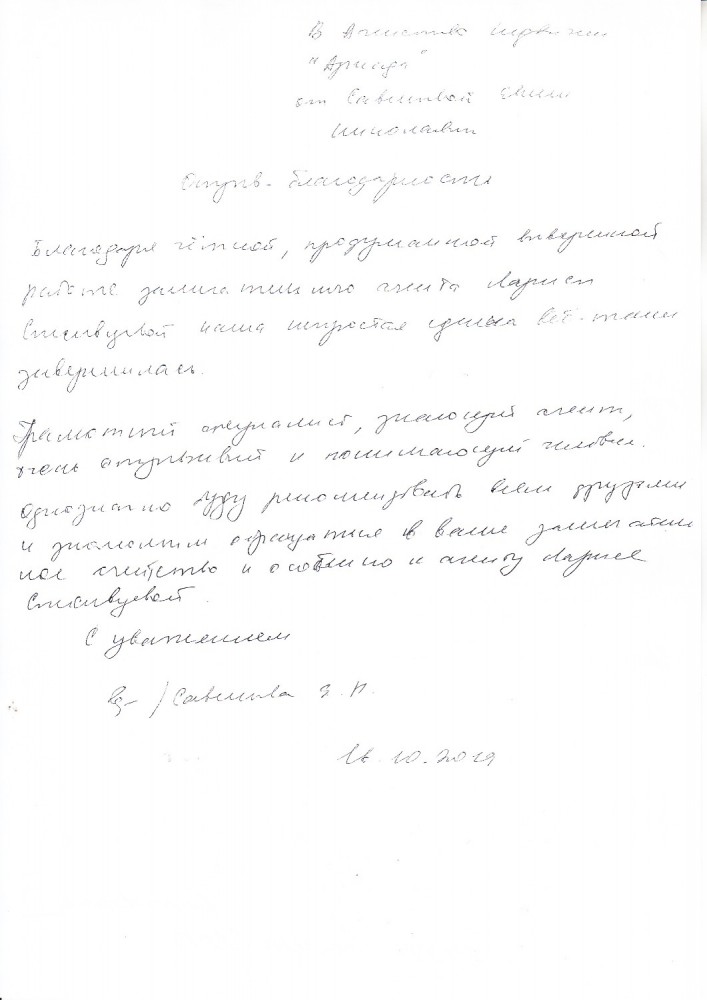 В Агентство недвижим
"Ариада"
от Савиновой
Николаевны
Отзыв-благодарность
Благодаря чёткой, продуманной выверенной
работе замечательного агента Ларисы
наша непростая сделка всё-таки
завершилась.
Грамотный специалист, знающий агент,
очень отзывчивый и понимающий человек.
Однозначно буду рекомендовать всем друзьям
и знакомым обращаться в ваше замечатель
ное агентство и особенно к агенту Ларисе
С уважением
/Савинова Э. Н.
16.10.2019